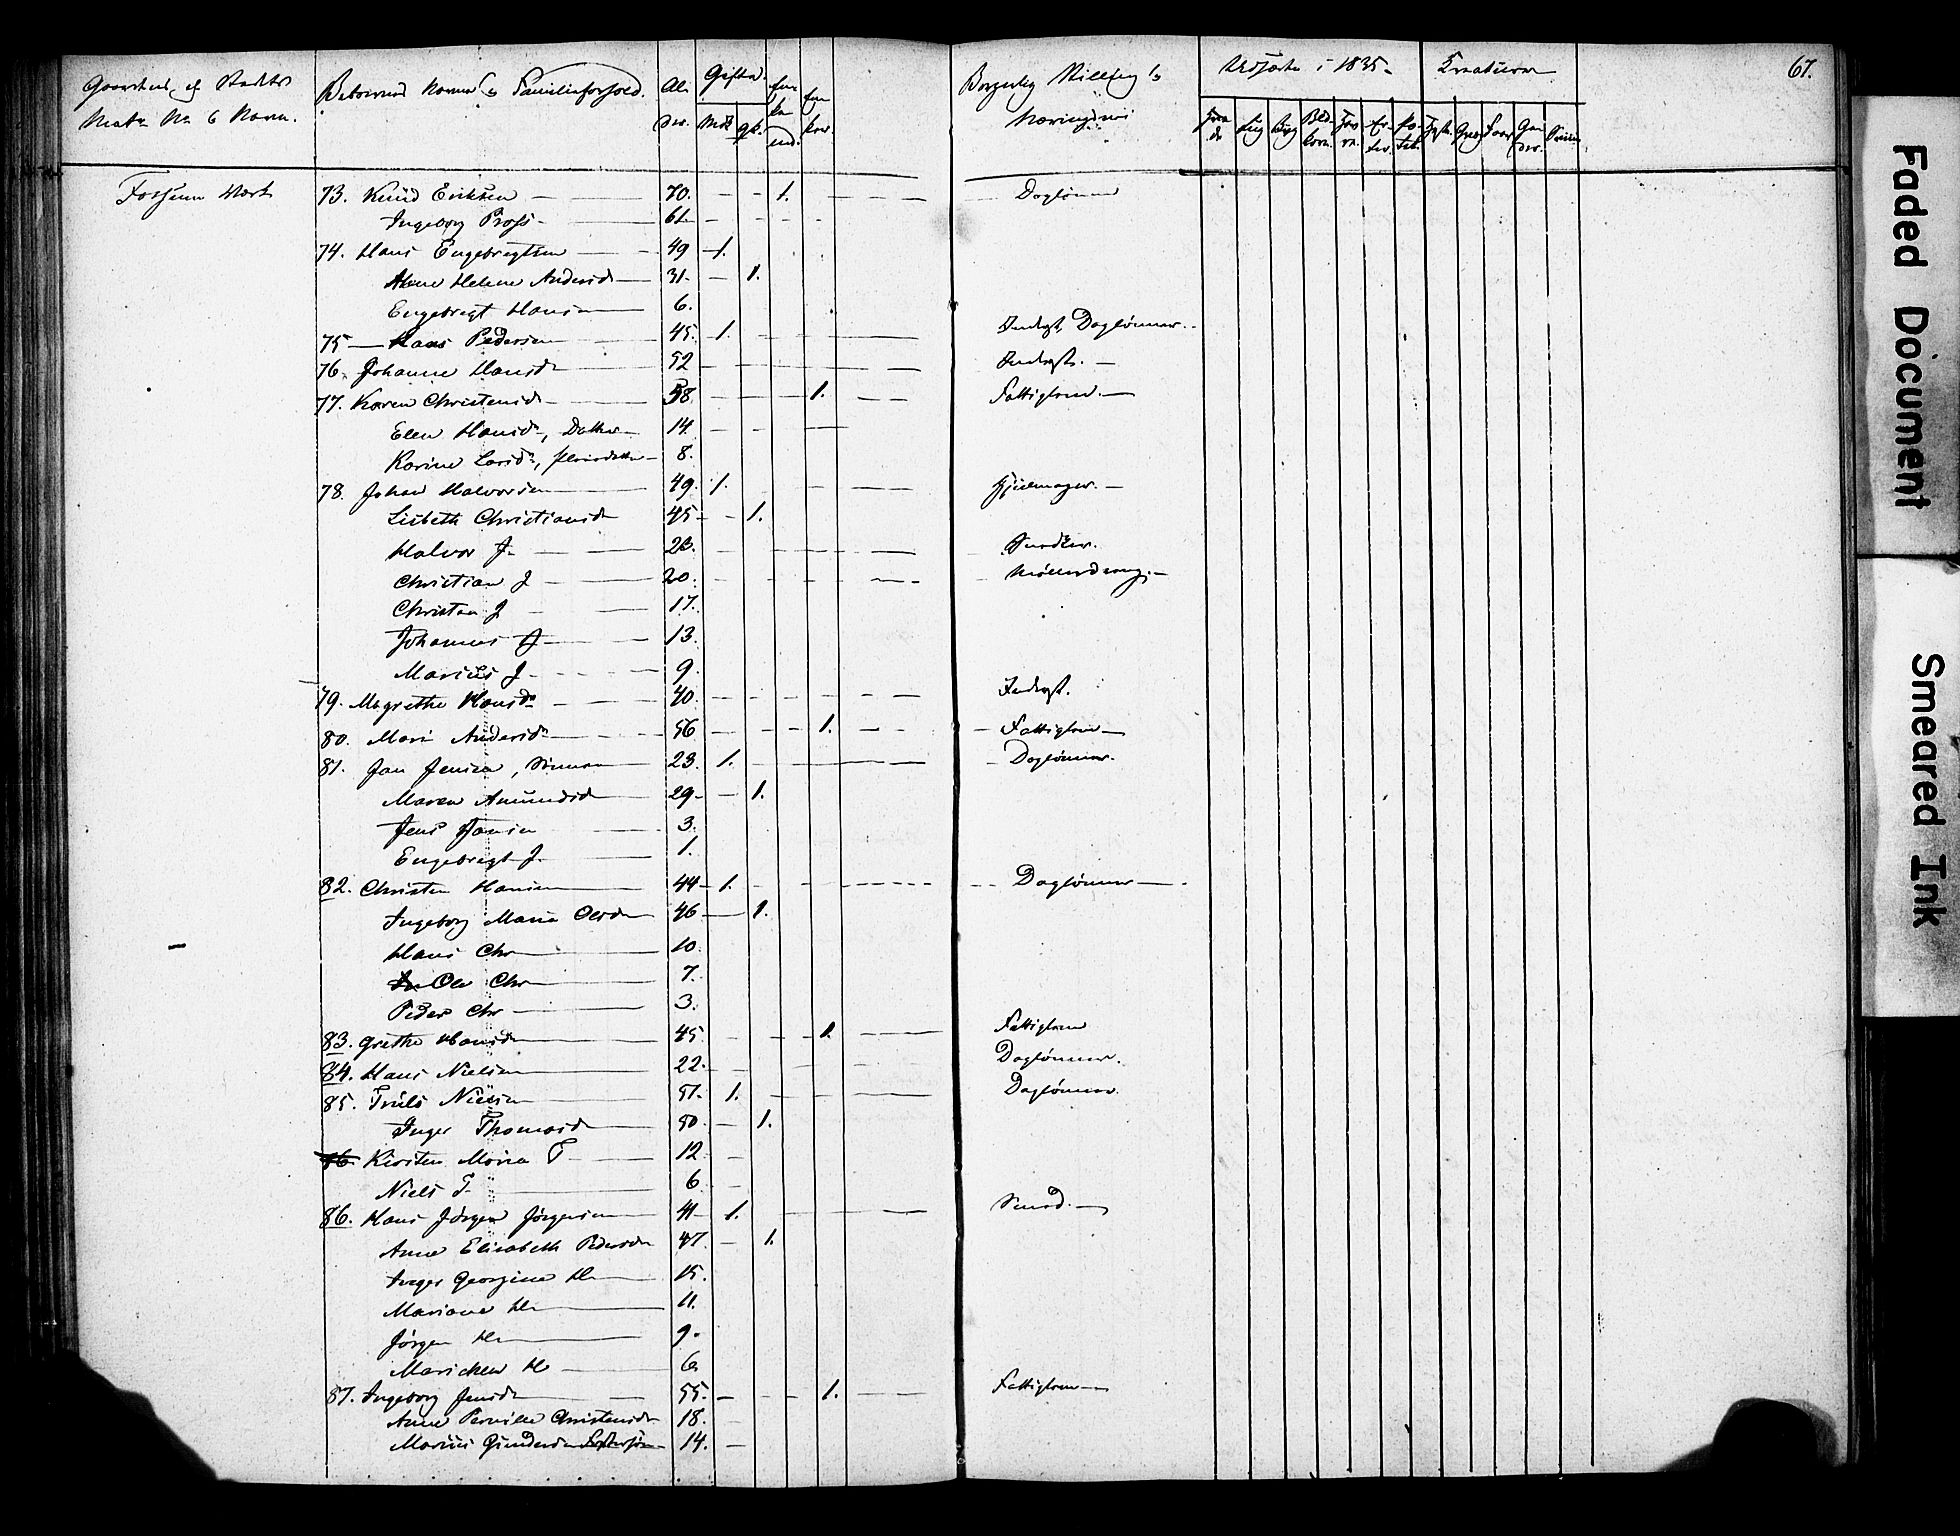 67.
Gaardens, og Stædets
Matr. No & Navn.
Beboernes Navne & Familieforhold.
Al-
der.
Gifte
Mdk.
Qk.
Enke
mnd.
En
ker.
Borgerlig Stilling &
Næringsvei
Udsæd i 1835
Hve
de
Rug
Byg
Bld-
korn.
Hav
re.
Er-
ter.
Po-
tet.
Creaturer
Hest.
Qvæg
Faar
Ge
der.
Sviin
Fossum Værk
73. Knud Eriksen 70. 1. Daglønner
Ingeborg 61.
74. Hans Engebregtsen 49 1.
Anne Helene Andersd. 31. 1.
Engebregt Hansen 6.
75 Hans Pedersen 45. 1. Inderst, Daglønner.
76. Johanne Hansd. 52 Inderst.
77. Karen Christensd. 58. 1. Fattiglem.
Elen Hansd., Datter 14.
Karine Larsd., 8.
78. Johan Halvorsen 49. 1. Hjulmager.
Lisbeth Christiansd. 45 1.
Halvor J. 23. Snedker.
Christian J 20. Møllerdreng.
Christen J 17.
Johannes J 13.
Marius J. 9.
79. Magrethe Hansd. 40. Inderst.
80. Mari Andersd. 56 1. Fattiglem
81. Jan Jensen, 23. 1. Daglønner.
Maren Amundsd. 29. 1.
Jens Jansen 3.
Engebregt J. 1.
82. Christen Hansen 44 1. Daglønner
Ingeborg Maria Olsd. 46 1.
Hans Chr 10.
Ole Chr 7.
Peder Chr 3.
83. Grethe Hansd. 45. 1. Fattiglem
84. Hans Nielsen 22. Daglønner.
85. Truls Nielsen 51. 1. Daglønner.
Inger Thomasd. 50. 1.
86. Kirsten Maria T 12
Niels T. 6.
86. Hans Jörgen Jörgensen 41 1. Smed.
Anne Elisabeth Pedersd. 47. 1.
Inger Georgine H 15.
Mariane H 11.
Jörgen H 9.
Marichen H 6.
87. Ingeborg Jensd. 55. 1. Fattiglem
Anne Pernille Christensd. 18.
Marius Gundersen Fostersøn 14.
Faded Document
Smeared Ink